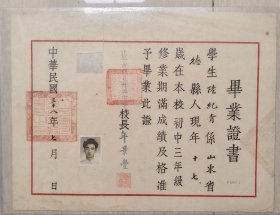 畢業證書
學生陸紀青係山東省
德縣人現年十七
歲在本校初中三年級
修業期滿成績及格准
予畢業此證
校長
中華民國三十八年七月 日